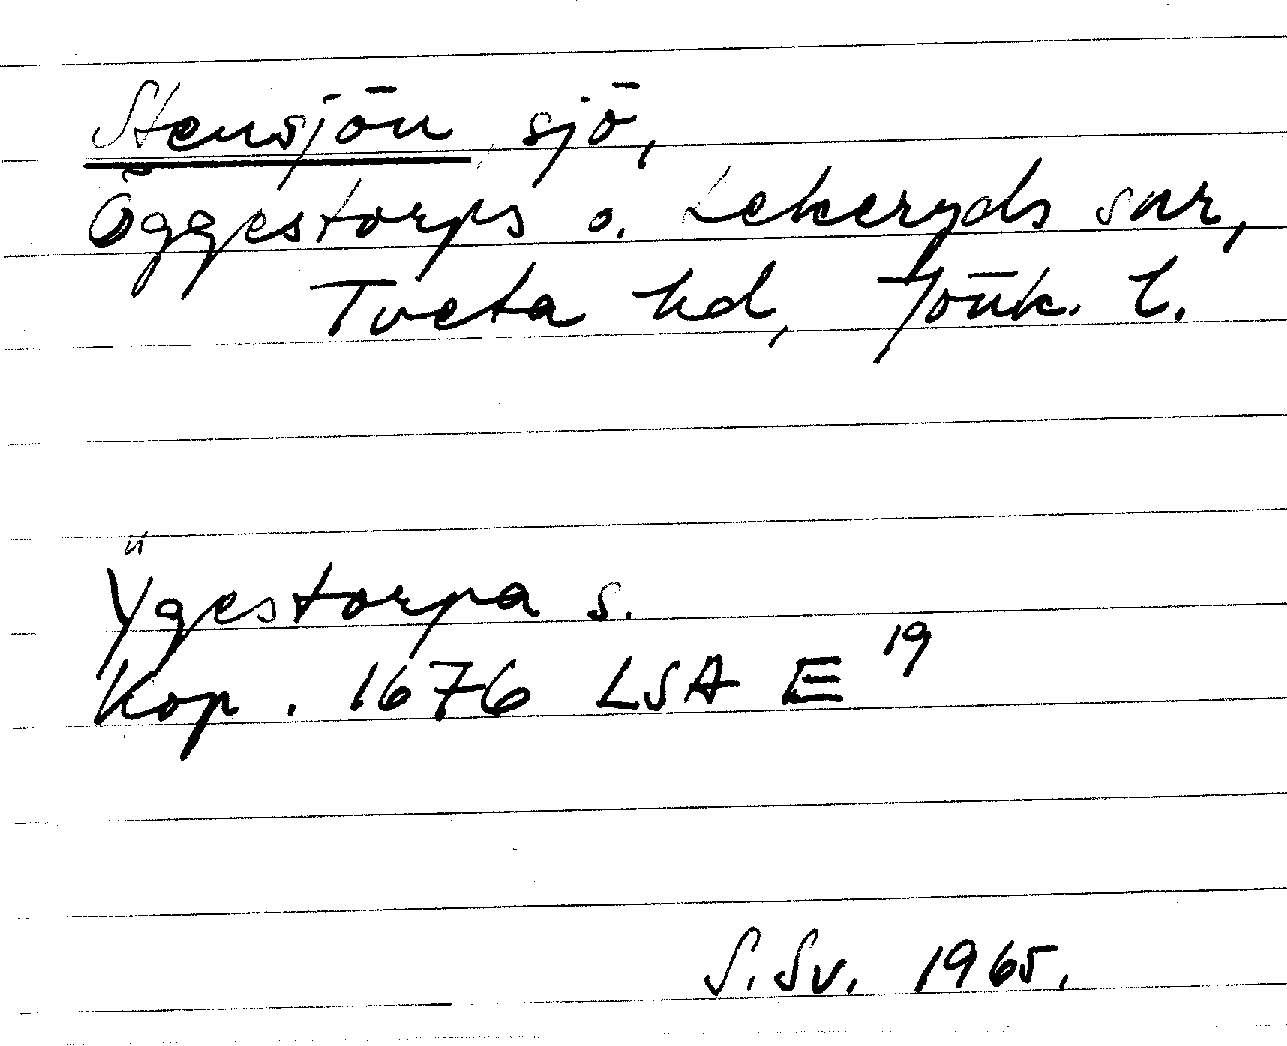 Stensjön, sjö,
Öggestorps o. Lekeryds snr,
Tveta hd, Jönk. l.
Ÿgestorpa s.
Kop. 1676 LSA E 19
S. Sv. 1965.